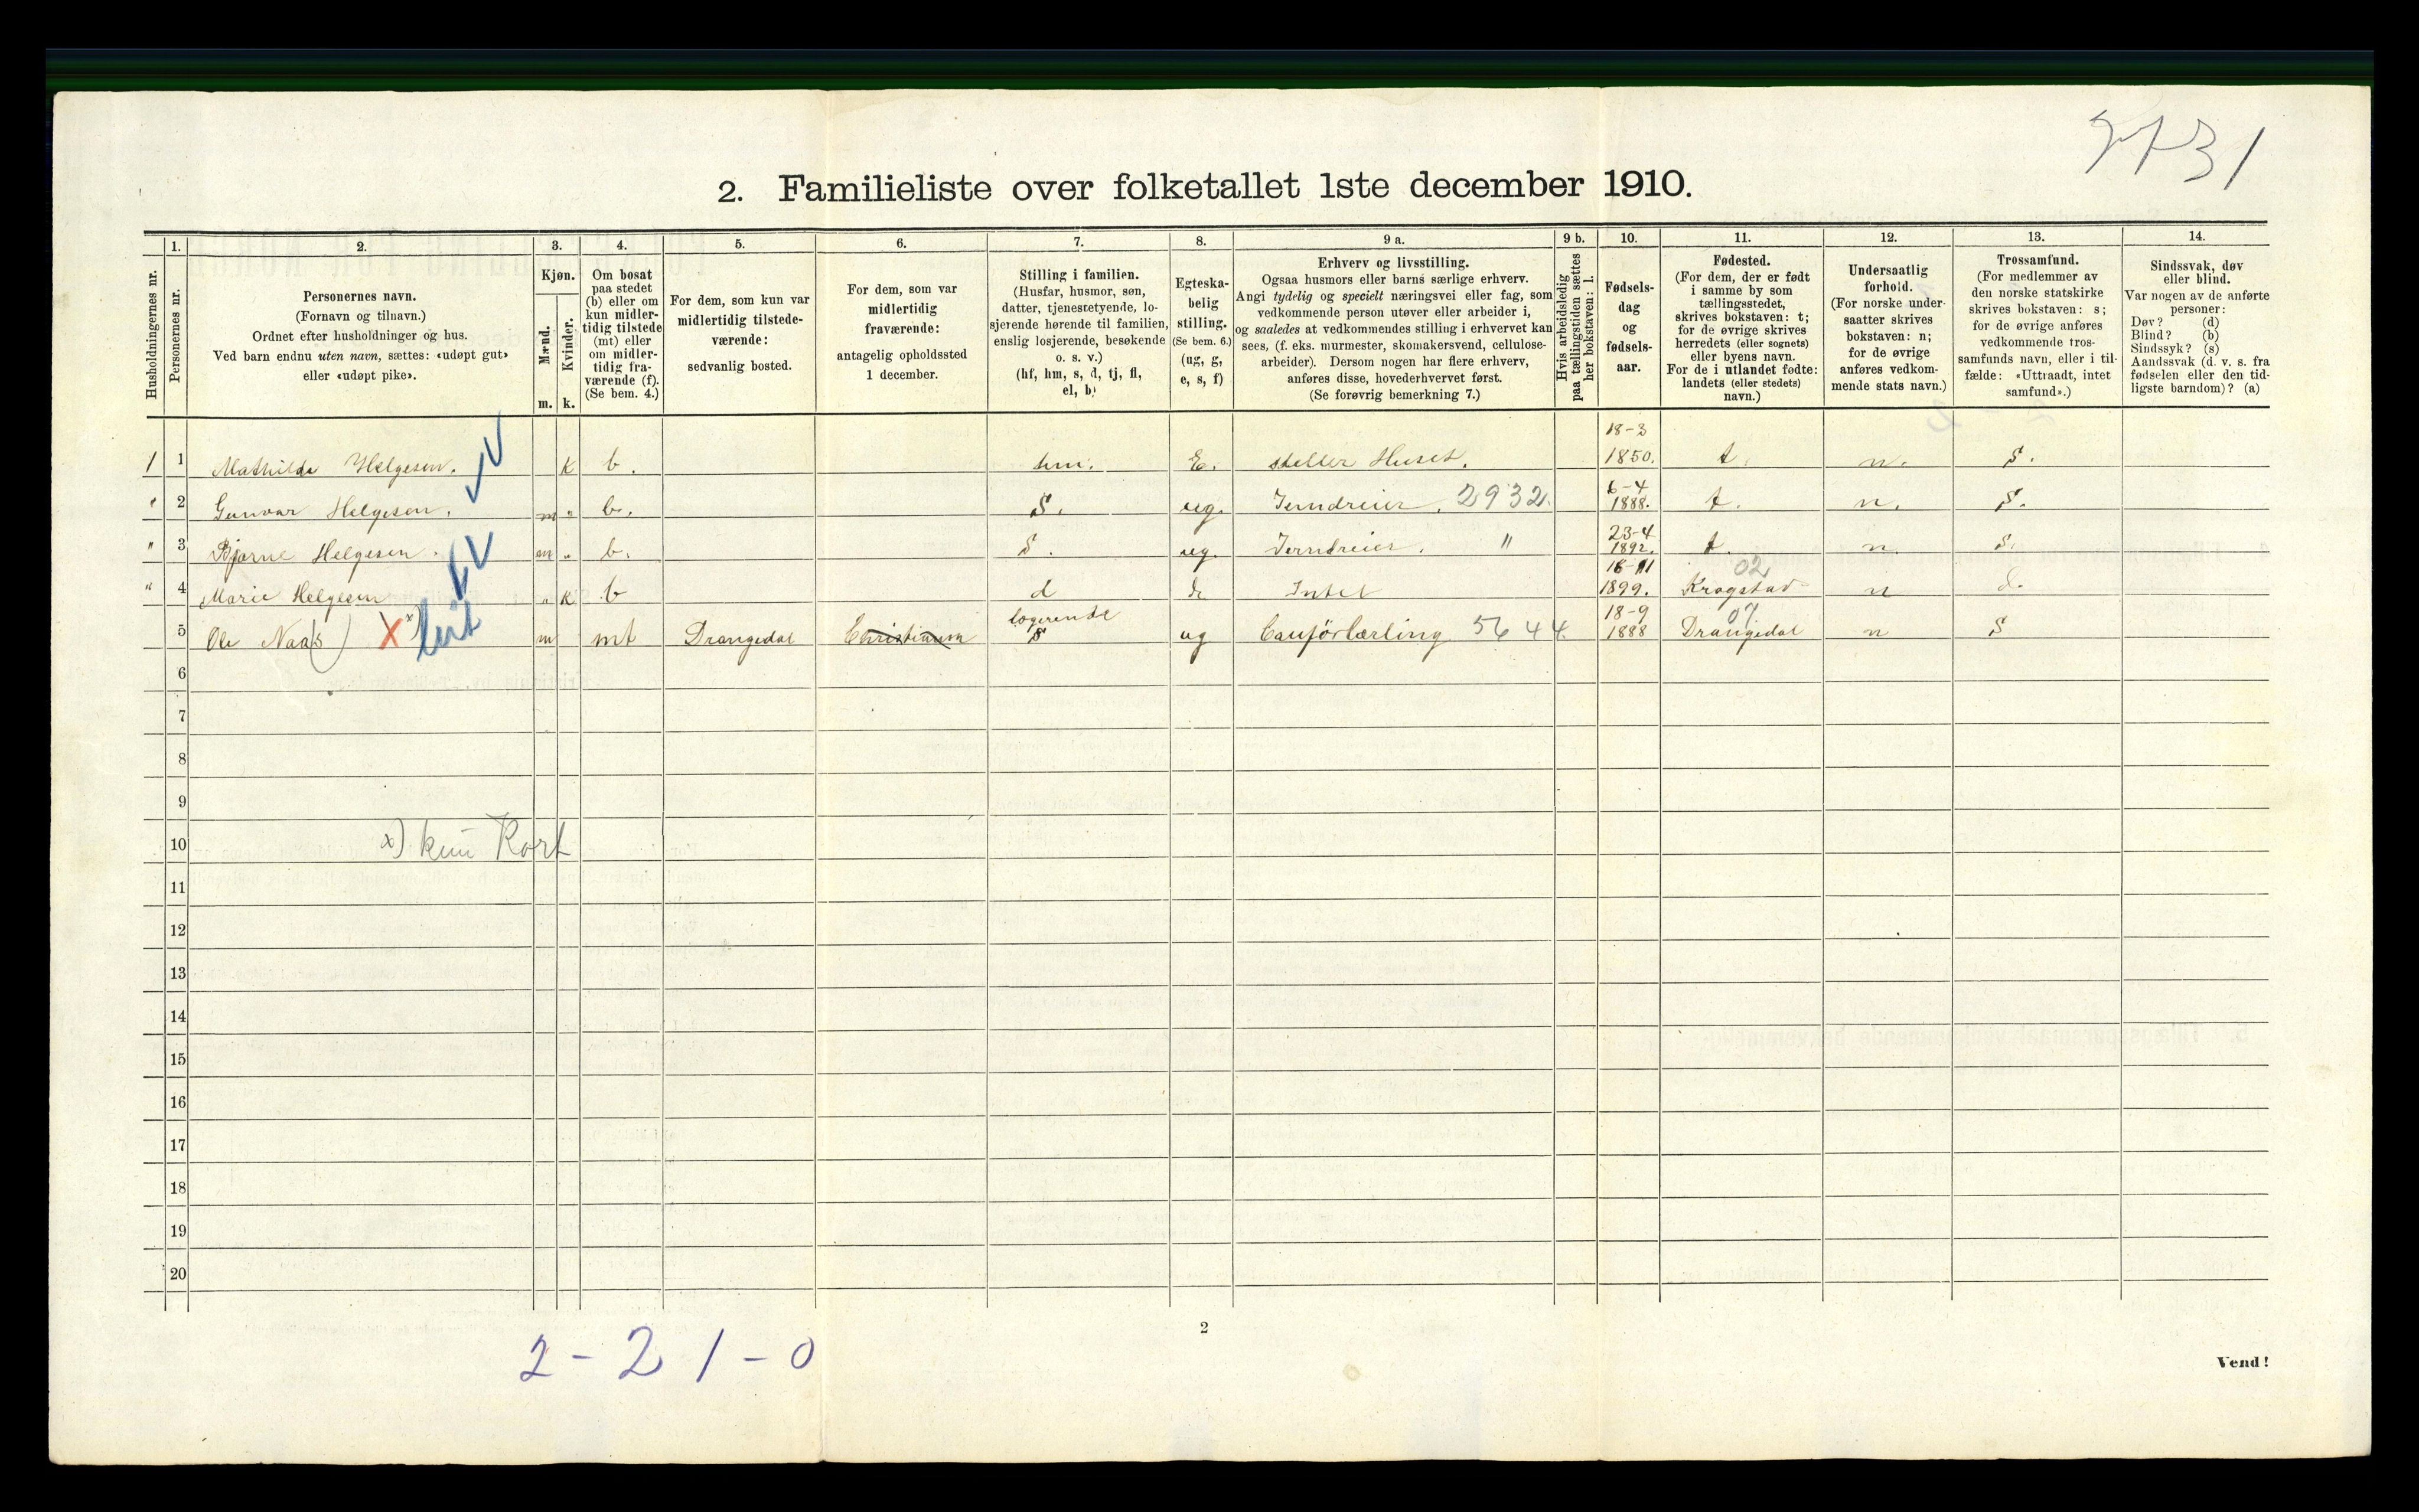 2. Familieliste over folketallet 1ste december 1910.
Husholdningernes nr.
1.
Personernes nr.
2.
Personernes navn.
(Fornavn og tilnavn.)
Ordnet efter husholdninger og hus.
Ved barn endnu uten navn, sættes: «udøpt gut»
eller «udøpt pike».
3.
Kjøn.
Mænd.
Kvinder.
m. k.
4.
Om bosat
paa stedet
(b) eller om
kun midler-
tidig tilstede
(mt) eller
om midler-
tidig fra-
værende (f).
(Se bem. 4.)
5.
For dem, som kun var
midlertidig tilstede-
værende:
sedvanlig bosted.
6.
For dem, som var
midlertidig
fraværende:
antagelig opholdssted
1 december.
7.
Stilling i familien.
(Husfar, husmor, søn,
datter, tjenestetyende, lo-
sjerende hørende til familien,
enslig losjerende, besøkende
o. s. v.)
(hf, hm, s, d, tj, fl,
el, b)
8.
Egteska-
belig
stilling.
(Se bem. 6.)
(ug, g,
e, s, f)
9 a.
Erhverv og livsstilling.
Ogsaa husmors eller barns særlige erhverv.
Angi tydelig og specielt næringsvei eller fag, som
vedkommende person utøver eller arbeider i,
og saaledes at vedkommendes stilling i erhvervet kan
sees, (f. eks. murmester, skomakersvend, cellulose-
arbeider). Dersom nogen har flere erhverv,
anføres disse, hovederhvervet først.
(Se forøvrig bemerkning 7.)
9 b.
Hvis arbeidsledig
paa tællingstiden sættes
her bokstaven: l.
10.
Fødsels-
dag
og
fødsels-
aar.
11.
Fødested.
(For dem, der er født
i samme by som
tællingsstedet,
skrives bokstaven: t;
for de øvrige skrives
herredets (eller sognets)
eller byens navn.
For de i utlandet fødte:
landets (eller stedets)
navn.)
12.
Undersaatlig
forhold.
(For norske under-
saatter skrives
bokstaven: n;
for de øvrige
anføres vedkom-
mende stats navn.)
13.
Trossamfund.
(For medlemmer av
den norske statskirke
skrives bokstaven: s;
for de øvrige anføres
vedkommende tros-
samfunds navn, eller i til-
fælde: «Uttraadt, intet
samfund».)
14.
Sindssvak, døv
eller blind.
Var nogen av de anførte
personer:
Døv? (d)
Blind? (b)
Sindssyk? (s)
Aandssvak (d. v. s. fra
fødselen eller den tid-
ligste barndom)? (a)
1 1 Mathilde Helgesen. k b. hm. E. steller Huset. 18-3 1850. t. n. S.
" 2 Gunvar Helgesen. m " b. S. ug. Jerndreier. 2932. 6-4 1888. t. n. S.
" 3 Bjarne Helgesen. m " b. S. ug. Jerndreier. " 23-4 1892. t. n. S.
" 4 Marie Helgesen " k b d Intet 16-11 1899. 02 Krogstad n
5 Ole X x) m mt Drangedal Christiania logerende S ug 5644. 18-9 1888 07 Drangedal n S
6
7
8
9
10 x) kun Kort
11
12
13
14
15
16
17
18
19
20
2 - 2 1 - 0
2
Vend!